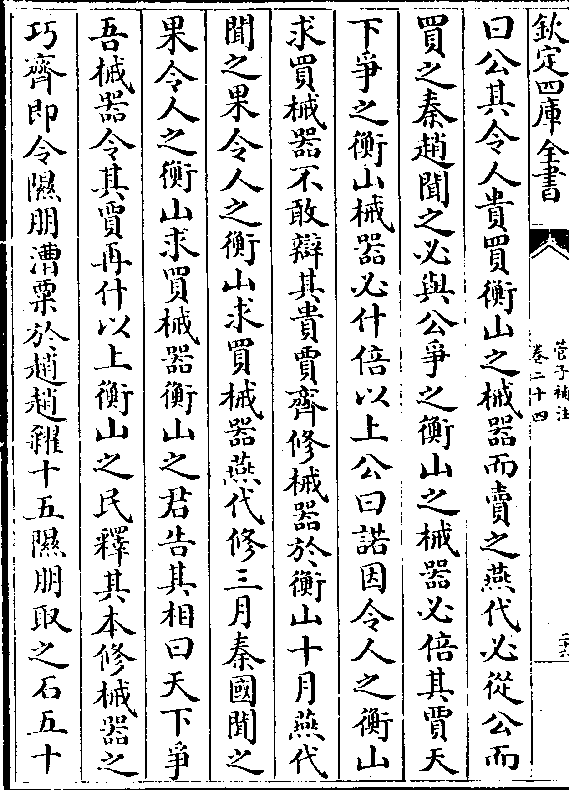 欽定四庫全書
管子補注
卷二十四
曰公其令人貴買衡山之械器而賣之燕代必從公而
買之秦趙聞之必與公爭之衡山之械器必倍其賈天
下爭之衡山械器必什倍以上公曰諾因令人之衡山
求買械器不敢辯其貴賈齊修械器於衡山十月燕代
聞之果令人之衡山求買械器燕代修三月秦國聞之
果令人之衡山求買械器衡山之君告其相曰天下爭
吾械器令其賈再什以上衡山之民釋其本修械器之
巧齊即令隰朋漕粟於趙趙糴十五隰朋取之石五十